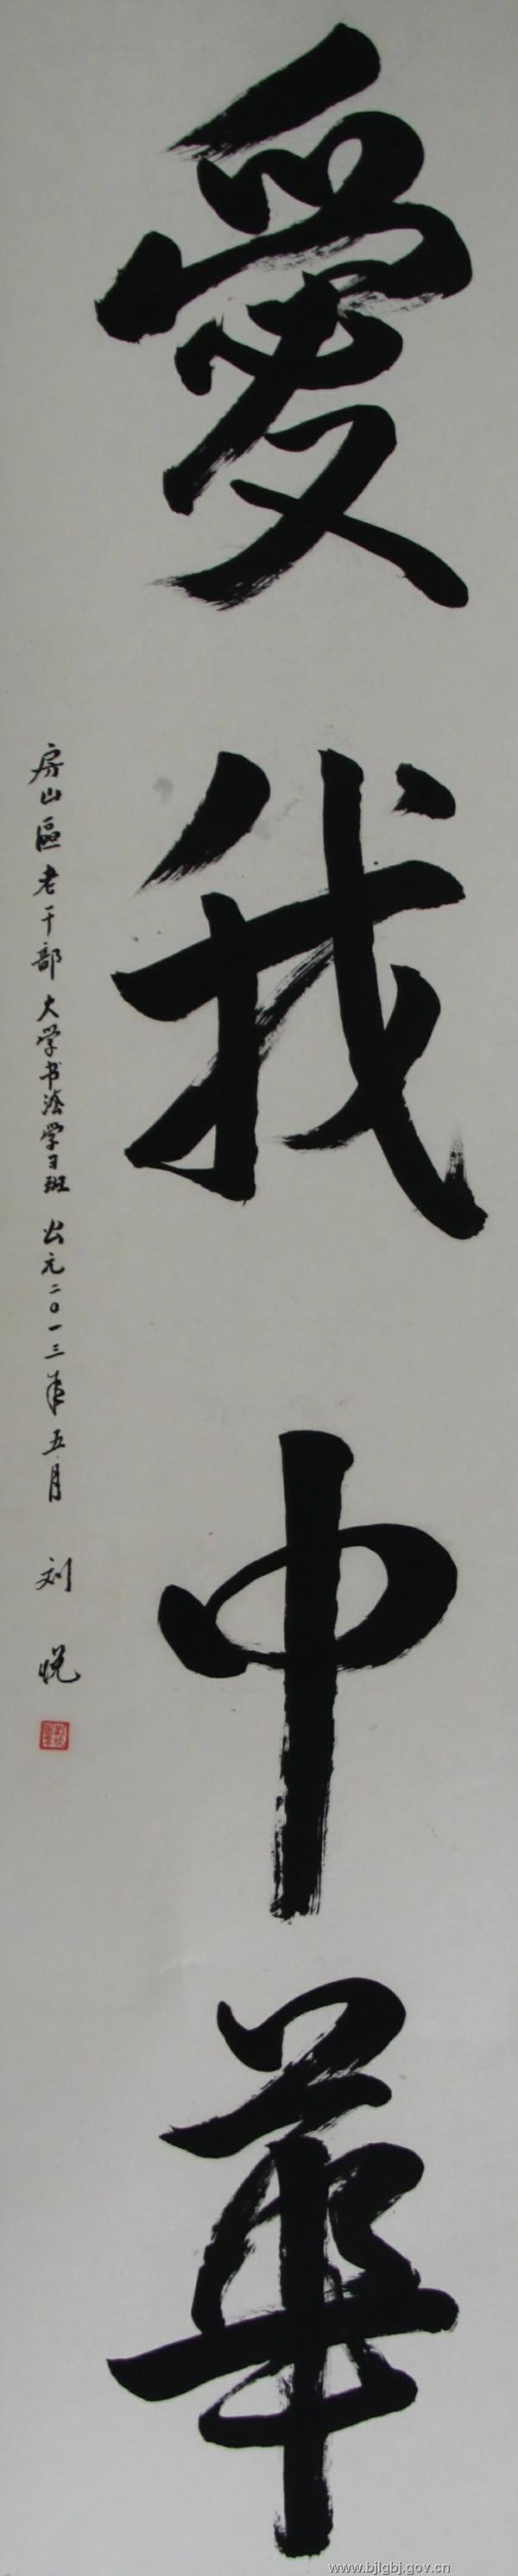 愛我中華
房山區老干部大学书法学习班 公元二〇一三年五月 刘悦
www.bjlgbj.gov.cn